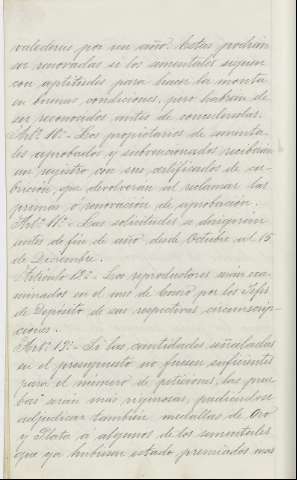 valederas por un año. Estas podrán
ser renovadas si los sementales siguen
con aptitudes para hacer la monta
en buenas condiciones, pero habrán de
ser reconocidos antes de concederlas.
Artº. 10º.- Los propietarios de sementa-
les aprobados y subvencionados recibirán
un registro con sus certificados de cu-
brición, que devolverán al reclamar las
primas ó renovación de aprobación.
Artº. 11º.- Las solicitudes se dirigirán
antes de fin de año, desde Octubre al 15
de Diciembre.
Artículo 12º.- Los reproductores serán exa-
minados en el mes de Enero por los Jefes
de Depósito de sus respectivas circunscrip-
ciones.
Artº. 13º.- Si las cantidades señaladas
en el presupuesto no fuesen suficientes
para el número de peticiones, las prue-
bas serán más rigurosas, pudiéndose
adjudicar también medallas de Oro
y Plata á algunos de los sementales
que ya hubieran estado premiados mas